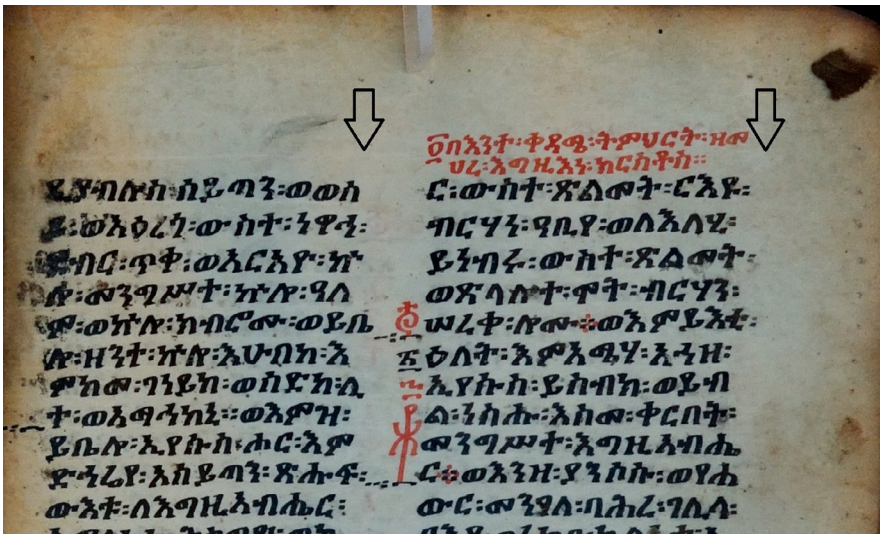 ዲያብሎስ፡ሰይጣን፡ወወሰ
ዶ፡ወአዕረጎ፡ውስተ፡ነዋኅ፡
ደብር፡ጥቀ፡ወአርአዮ፡ኵ
ሎ፡መንግሥተ፡ኵሉ፡ዓለ
ም፡ወኵሎ፡ክብሮሙ፡ወይቤ
ሎ፡ዘንተ፡ኵሎ፡እሁበከ፡እ
ምከመ፡ገነይከ፡ወሰድከ፡ሊ
ተ፡ወአማኅከኒ፡፡ወእምዝ፡
ይቤሎ፡ኢየሱስ፡ሑር፡እም
ድኅሬየ፡አሰይጣን፡ጽሑፍ፡
ውእቱ፡ለእግዚአብሔር፡
፬በእንተ፡ቀዳሜ፡ትምህርት፡ዘመ
ሀረ፡እግዚእነ፡ክርስቶስ፡፡
ር፡ውስተ፡ጽልመት፡ርእዩ፡
ብርሃነ፡ዓቢየ፡ወለእለሂ፡
ይነብሩ፡ውስተ፡ጽልመት፡
ወጽላሎተ፡ሞት፡ብርሃን፡
ሠረቀ፡ሎሙ፡፡ወእምይእቲ፡
ዕለት፡እምአሜሃ፡አኀዘ፡
ኢየሱስ፡ይስብክ፡ወይብ
ል፡ነስሑ፡እስመ፡ቀርበት፡
መንግሥተ፡እግዚአብሔ
ር፡፡ወእንዘ፡ያንሶሱ፡ወየሐ
ውር፡መንገለ፡ባሕረ፡ገሊላ፡